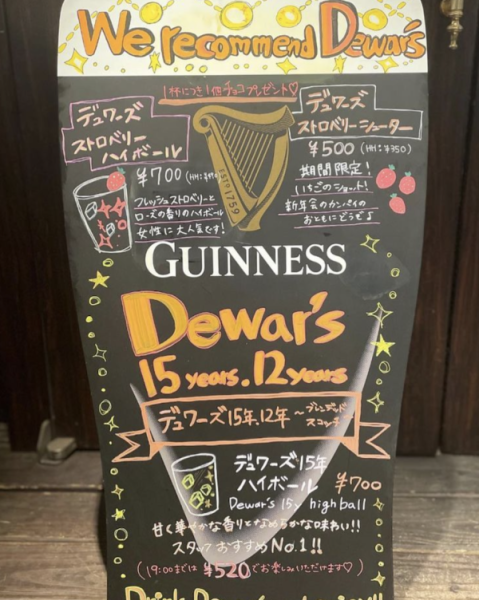 We recommend Dewar's
1杯につき1個チョコプレゼント♡
デュワーズ
ストロベリー
ハイボール
¥700
フレッシュストロベリーと
ローズの香りのハイボール
女性に大人気です!
EST D 1759
デュワーズ
ストロベリーシューター
¥500 (HH: ¥350)
期間限定!
いちごのショット!
新年会のカンパイの
おともにどうぞ♪
GUINNESS
Dewar's
15 years. 12 years
デュワーズ15年、12年 〜ブレンデッド
スコッチ
デュワーズ15年
ハイボール ¥700
Dewar's 15、high ball
甘く華やかな香りとなめらかな味わい!!
スタッフおすすめNo.1!!
(19:00までは ¥520でお楽しみいただけます♡)